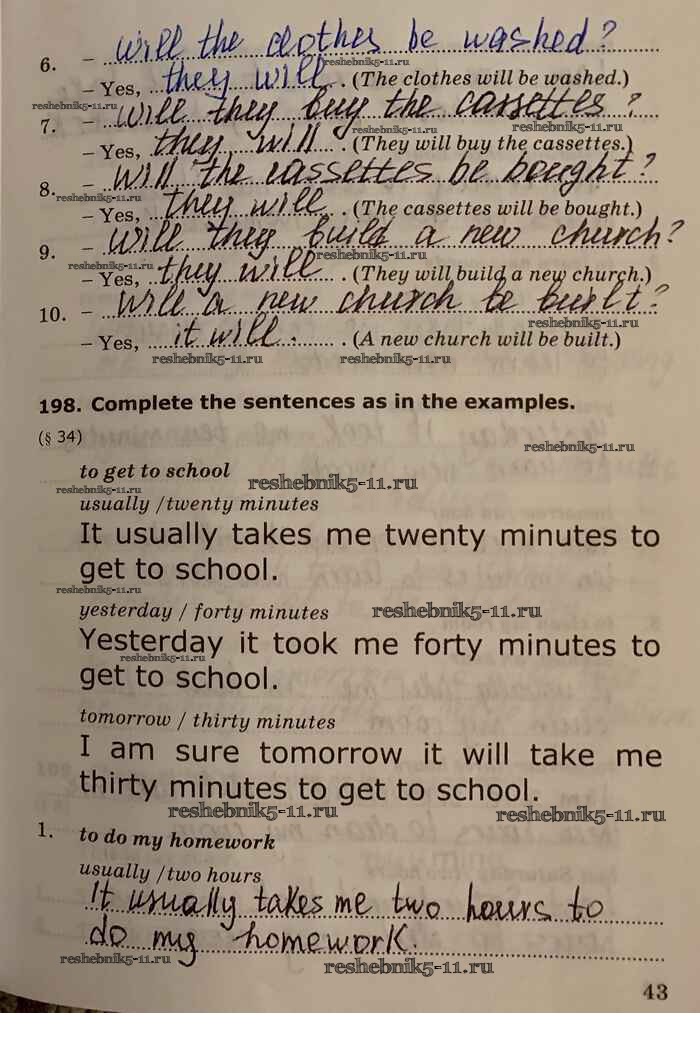 6. – will the clothes be washed?
reshebnik5-11.ru
– Yes, they will. (The clothes will be washed.)
reshebnik5-11.ru
7. – will they buy the cassettes?
reshebnik5-11.ru reshebnik5-11.ru
– Yes, they will. (They will buy the cassettes.)
8. – will the cassettes be bought?
reshebnik5-11.ru
– Yes, they will. (The cassettes will be bought.)
9. – will they build a new church?
reshebnik5-11.ru reshebnik5-11.ru
– Yes, they will. (They will build a new church.)
10. – Will a new church be built?
reshebnik5-11.ru
– Yes, it will. (A new church will be built.)
reshebnik5-11.ru reshebnik5-11.ru
198. Complete the sentences as in the examples.
(§ 34)
reshebnik5-11.ru
to get to school
reshebnik5-11.ru reshebnik5-11.ru
usually /twenty minutes
It usually takes me twenty minutes to
get to school.
reshebnik5-11.ru
yesterday / forty minutes reshebnik5-11.ru
Yesterday it took me forty minutes to
reshebnik5-11.ru
get to school.
tomorrow / thirty minutes
I am sure tomorrow it will take me
thirty minutes to get to school.
reshebnik5-11.ru reshebnik5-11.ru
1. to do my homework
usually /two hours
It usually takes me two hours to
do my homework.
reshebnik5-11.ru reshebnik5-11.ru
43